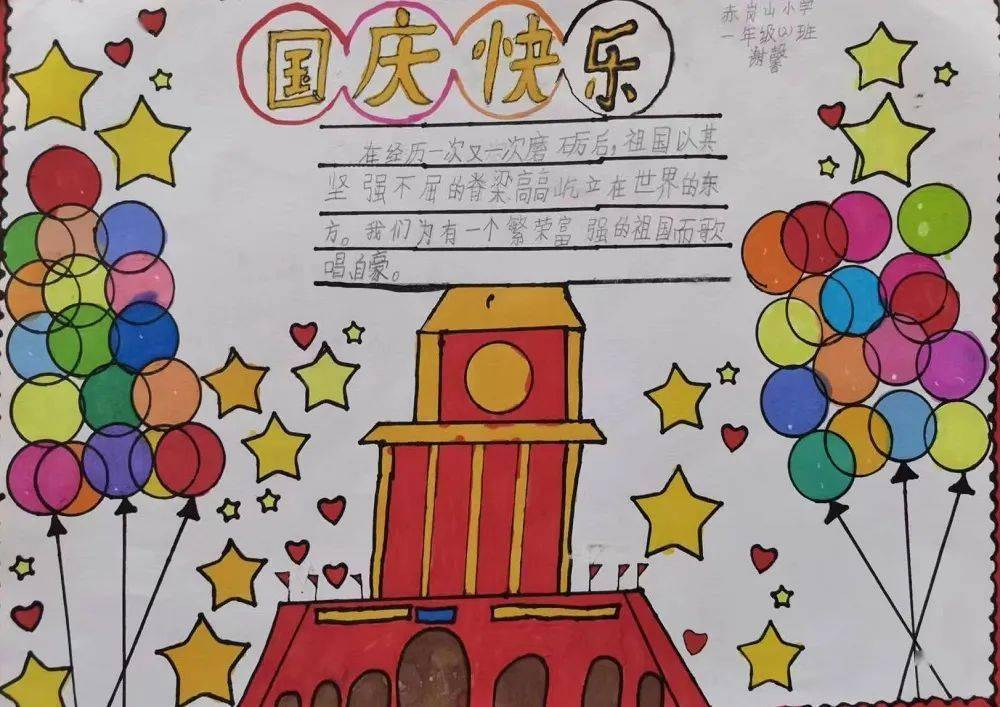 国庆快乐
赤岗山小学
一年级(2)班
谢馨
在经历一次又一次磨砺后，祖国以其
坚强不屈的脊梁高高屹立在世界的东
方。我们为有一个繁荣富强的祖国而歌
唱，自豪。